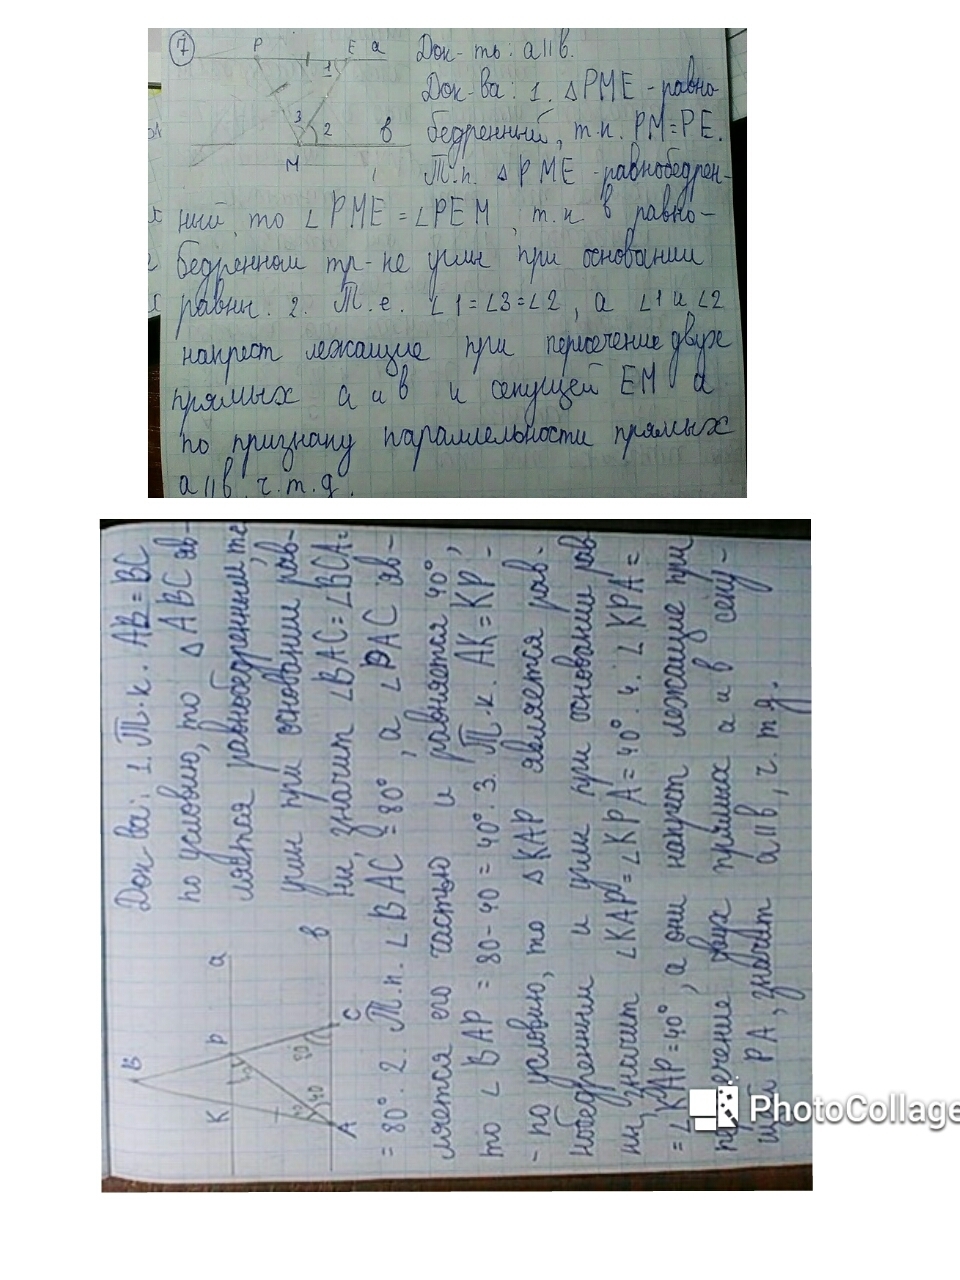 7
P E a
1
3 2 в
M
Док-ть: a||в.
Док-ва: 1. △PME - равно-
бедренный, т.к. PM=PE.
Т.к. △PME -равнобедрен-
ный, то ∠PME = ∠PEM, т.к. в равно-
бедренном тр-ке углы при основании
равны. 2. Т.е. ∠1=∠3=∠2, а ∠1 и ∠2
накрест лежащие при пересечение двух
прямых а и в и секущей EM а
по признаку параллельности прямых
a||в. ч.т.д.
B
K P a
40
80
A C в
Док-ва: 1. Т.к. AB=BC
по условию, то △ABC яв-
ляется равнобедренным, т.е
углы при основании рав-
ны, значит ∠BAC=∠BCA=
=80°. 2. Т.к. ∠BAC=80°, а ∠PAC яв-
ляется его частью и равняется 40°,
то ∠BAP = 80-40=40°. 3. Т.к. AK=KP -
- по условию, то △KAP является рав-
нобедренным и углы при основании рав
ны, значит ∠KAP=∠KPA=40°. 4. ∠KPA=
=∠KAP=40°, а они накрест лежащие при
пересечение двух прямых а и в секу-
щей PA, значит a||в, ч.т.д.
PhotoCollage